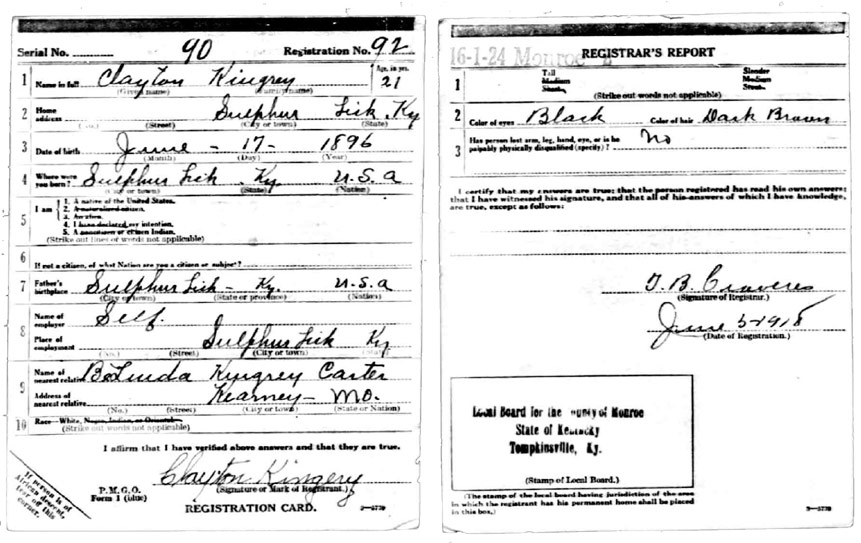 Serial No. 90 Registration No. 92
1 Name in full Clayton Kingrey Age, in yrs. 21
(Given name) (Family name)
2 Home address Sulphur Lick, Ky
(No.) (Street) (City or town) (State)
3 Date of birth June - 17 - 1896
(Month) (Day) (Year)
4 Where were you born? Sulphur Lick Ky. U.S.A
(City or town) (State) (Nation)
5 I am
1. A native of the United States.
2. A naturalized citizen.
3. An alien.
4. I have declared my intention.
5. A noncitizen or citizen Indian.
(Strike out lines or words not applicable)
6 If not a citizen, of what Nation are you a citizen or subject?
7 Father's birthplace Sulphur Lick - Ky. U.S.A
(City or town) (State or province) (Nation)
8 Name of employer Self.
Place of employment Sulphur Lick Ky
(No.) (Street) (City or town) (State)
9 Name of nearest relative Belinda Kingrey Carter
Address of nearest relative Kearney - Mo.
(No.) (Street) (City or town) (State or Nation)
10 Race—White, Negro, Indian, or Oriental
(Strike out words not applicable)
I affirm that I have verified above answers and that they are true.
Clayton Kingery
P.M.G.O.
Form 1 (blue)
(Signature or Mark of Registrant.)
REGISTRATION CARD.
If person is of
African descent,
tear off this
corner.
16-1-24 Monroe
REGISTRAR'S REPORT
1 Tall Slender
Medium Medium
Short Stout
(Strike out words not applicable)
2 Color of eyes Black Color of hair Dark Brown
3 Has person lost arm, leg, hand, eye, or is he
palpably physically disqualified (specify)? No
I certify that my answers are true; that the person registered has read his own answers;
that I have witnessed his signature, and that all of his answers of which I have knowledge,
are true, except as follows:
(Signature of Registrar.)
June 5-1918
(Date of Registration.)
Local Board for the County of Monroe
State of Kentucky
Tompkinsville, Ky.
(Stamp of Local Board.)
(The stamp of the local board having jurisdiction of the area
in which the registrant has his permanent home shall be placed
in this box.)